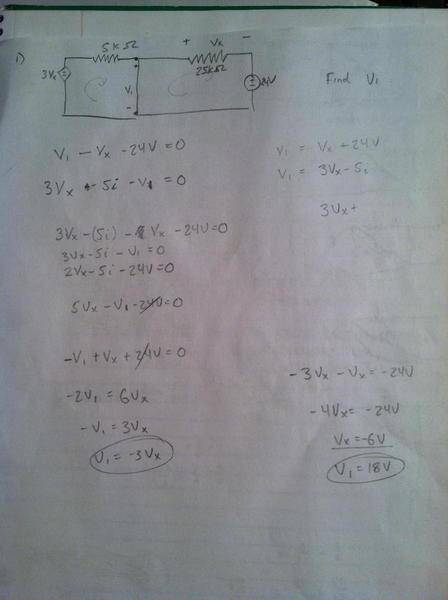 1)
5KΩ
+ Vx -
25KΩ
3Vx
V1
-
24V
Find V1
V1 - Vx - 24V = 0
3Vx - 5i - V1 = 0
3Vx - (5i) - Vx - 24V = 0
3Vx - 5i - V1 = 0
2Vx - 5i - 24V = 0
5Vx - V1 - 24V = 0
-V1 + Vx + 24V = 0
-2V1 = 6Vx
-V1 = 3Vx
V1 = -3Vx
V1 = Vx + 24V
V1 = 3Vx - 5i
3Vx +
-3Vx - Vx = -24V
-4Vx = -24V
Vx = -6V
V1 = 18V